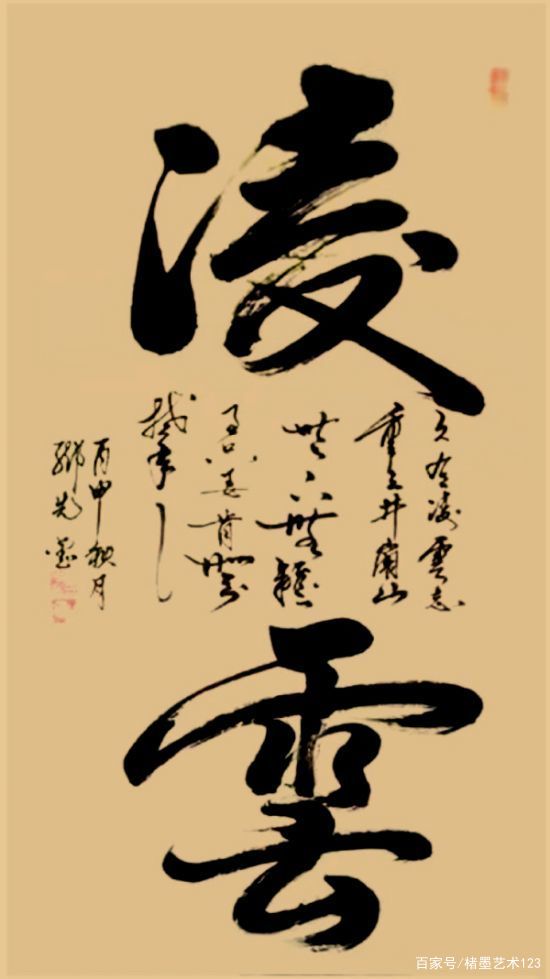 凌雲
久有凌雲志
重上井岡山
世上無難
事只要肯登
攀
丙申秋月
百家号/楮墨艺术123